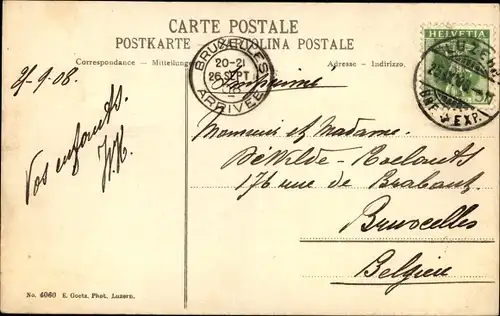 CARTE POSTALE
POSTKARTE CARTOLINA POSTALE
Correspondance — Mitteilung
Adresse - Indirizzo.
BRUXELLES
20-21
26 SEPT
ARRIVÉE
HELVETIA
LUZERN
BRF. EXP.
Imprimé
Vos enfants.
Monsieur et Madame.
DeWilde-Roelants
176 rue de Brabant.
Bruxelles
Belgien
No. 4060 E. Goetz, Phot., Luzern.